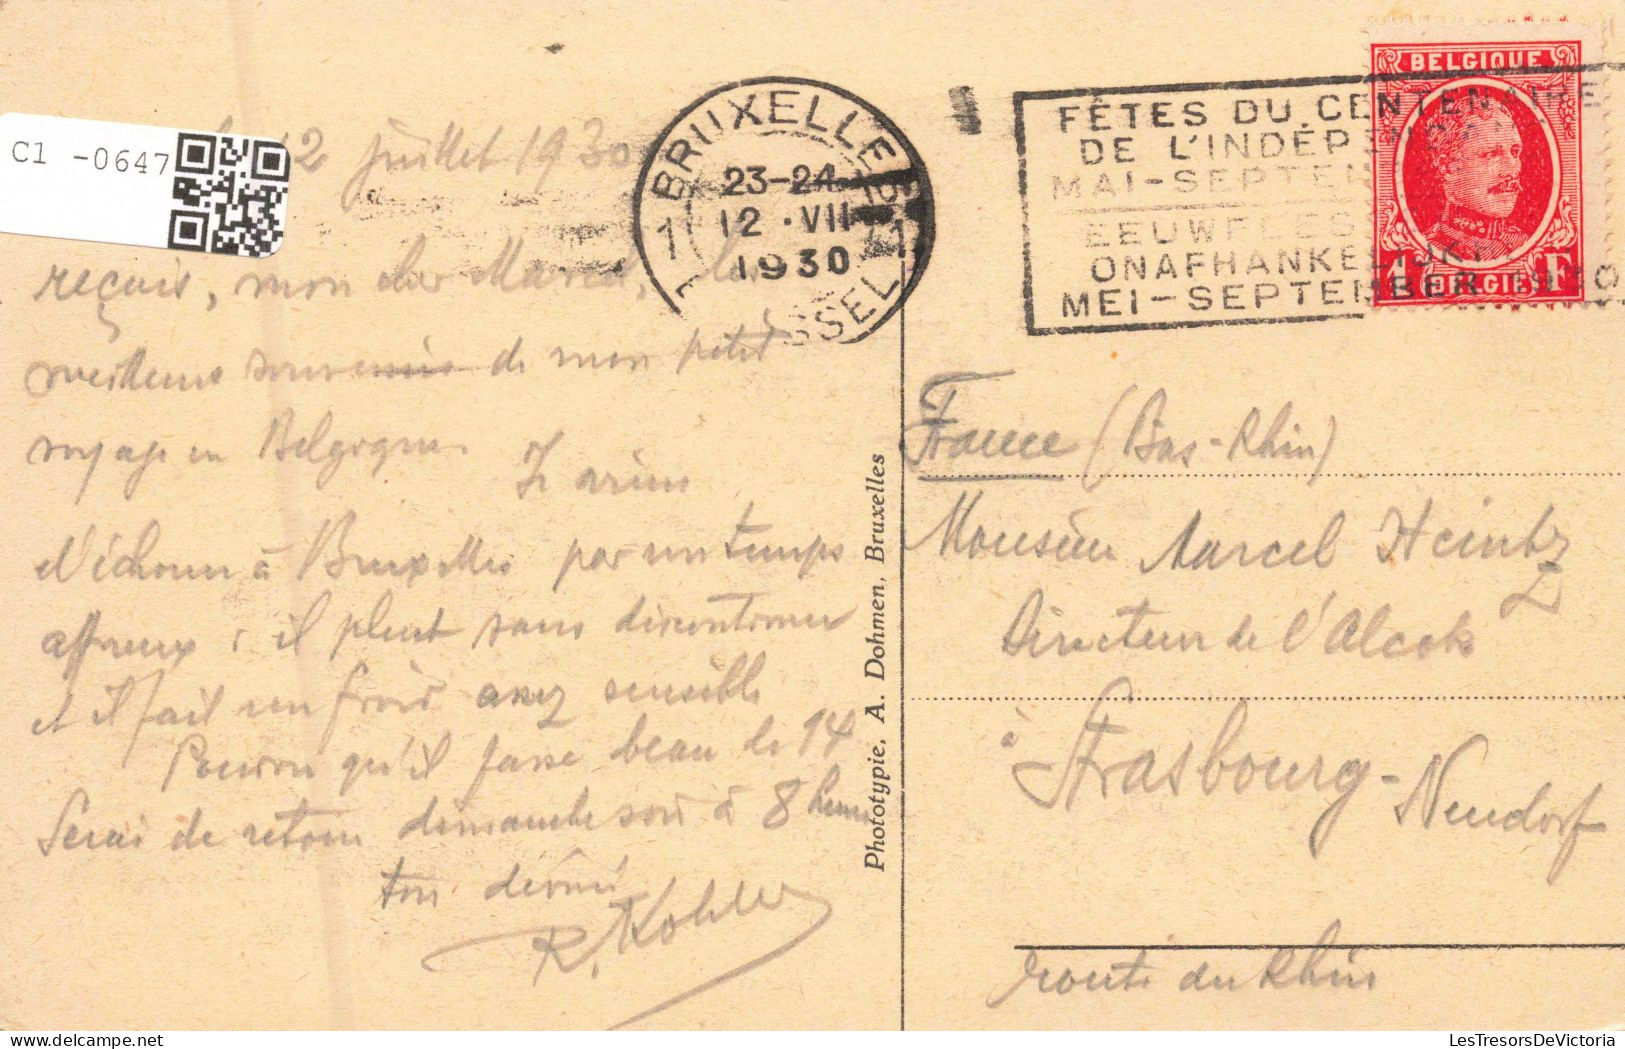 C1 -0647
12 juillet 1930
reçois, mon cher Marcel, les
meilleurs souvenirs de mon petit
voyage en Belgique.
Je viens
d'échouer à Bruxelles par un temps
affreux ; il pleut sans discontinuer
et il fait un froid assez sensible
Pourvu qu'il fasse beau le 14
Serai de retour dimanche soir à 8 heures
ton dévoué
R. Kohler
BRUXELLES
23-24
12 · VII
1930
1 1
BRUSSEL
Phototypie, A. Dohmen, Bruxelles
FÊTES DU CENTENAIRE
DE L'INDÉPENDANCE
MAI-SEPTEMBRE
EEUWFEEST
ONAFHANKELIJKH
MEI-SEPTEMBER 1930
BELGIQUE
1 F
BELGIE
France (Bas-Rhin)
Monsieur Marcel Heintz
Directeur de l'Alcools
à Strasbourg-
Neudorf
route du Rhin
LesTresorsDeVictoria
www.delcampe.net